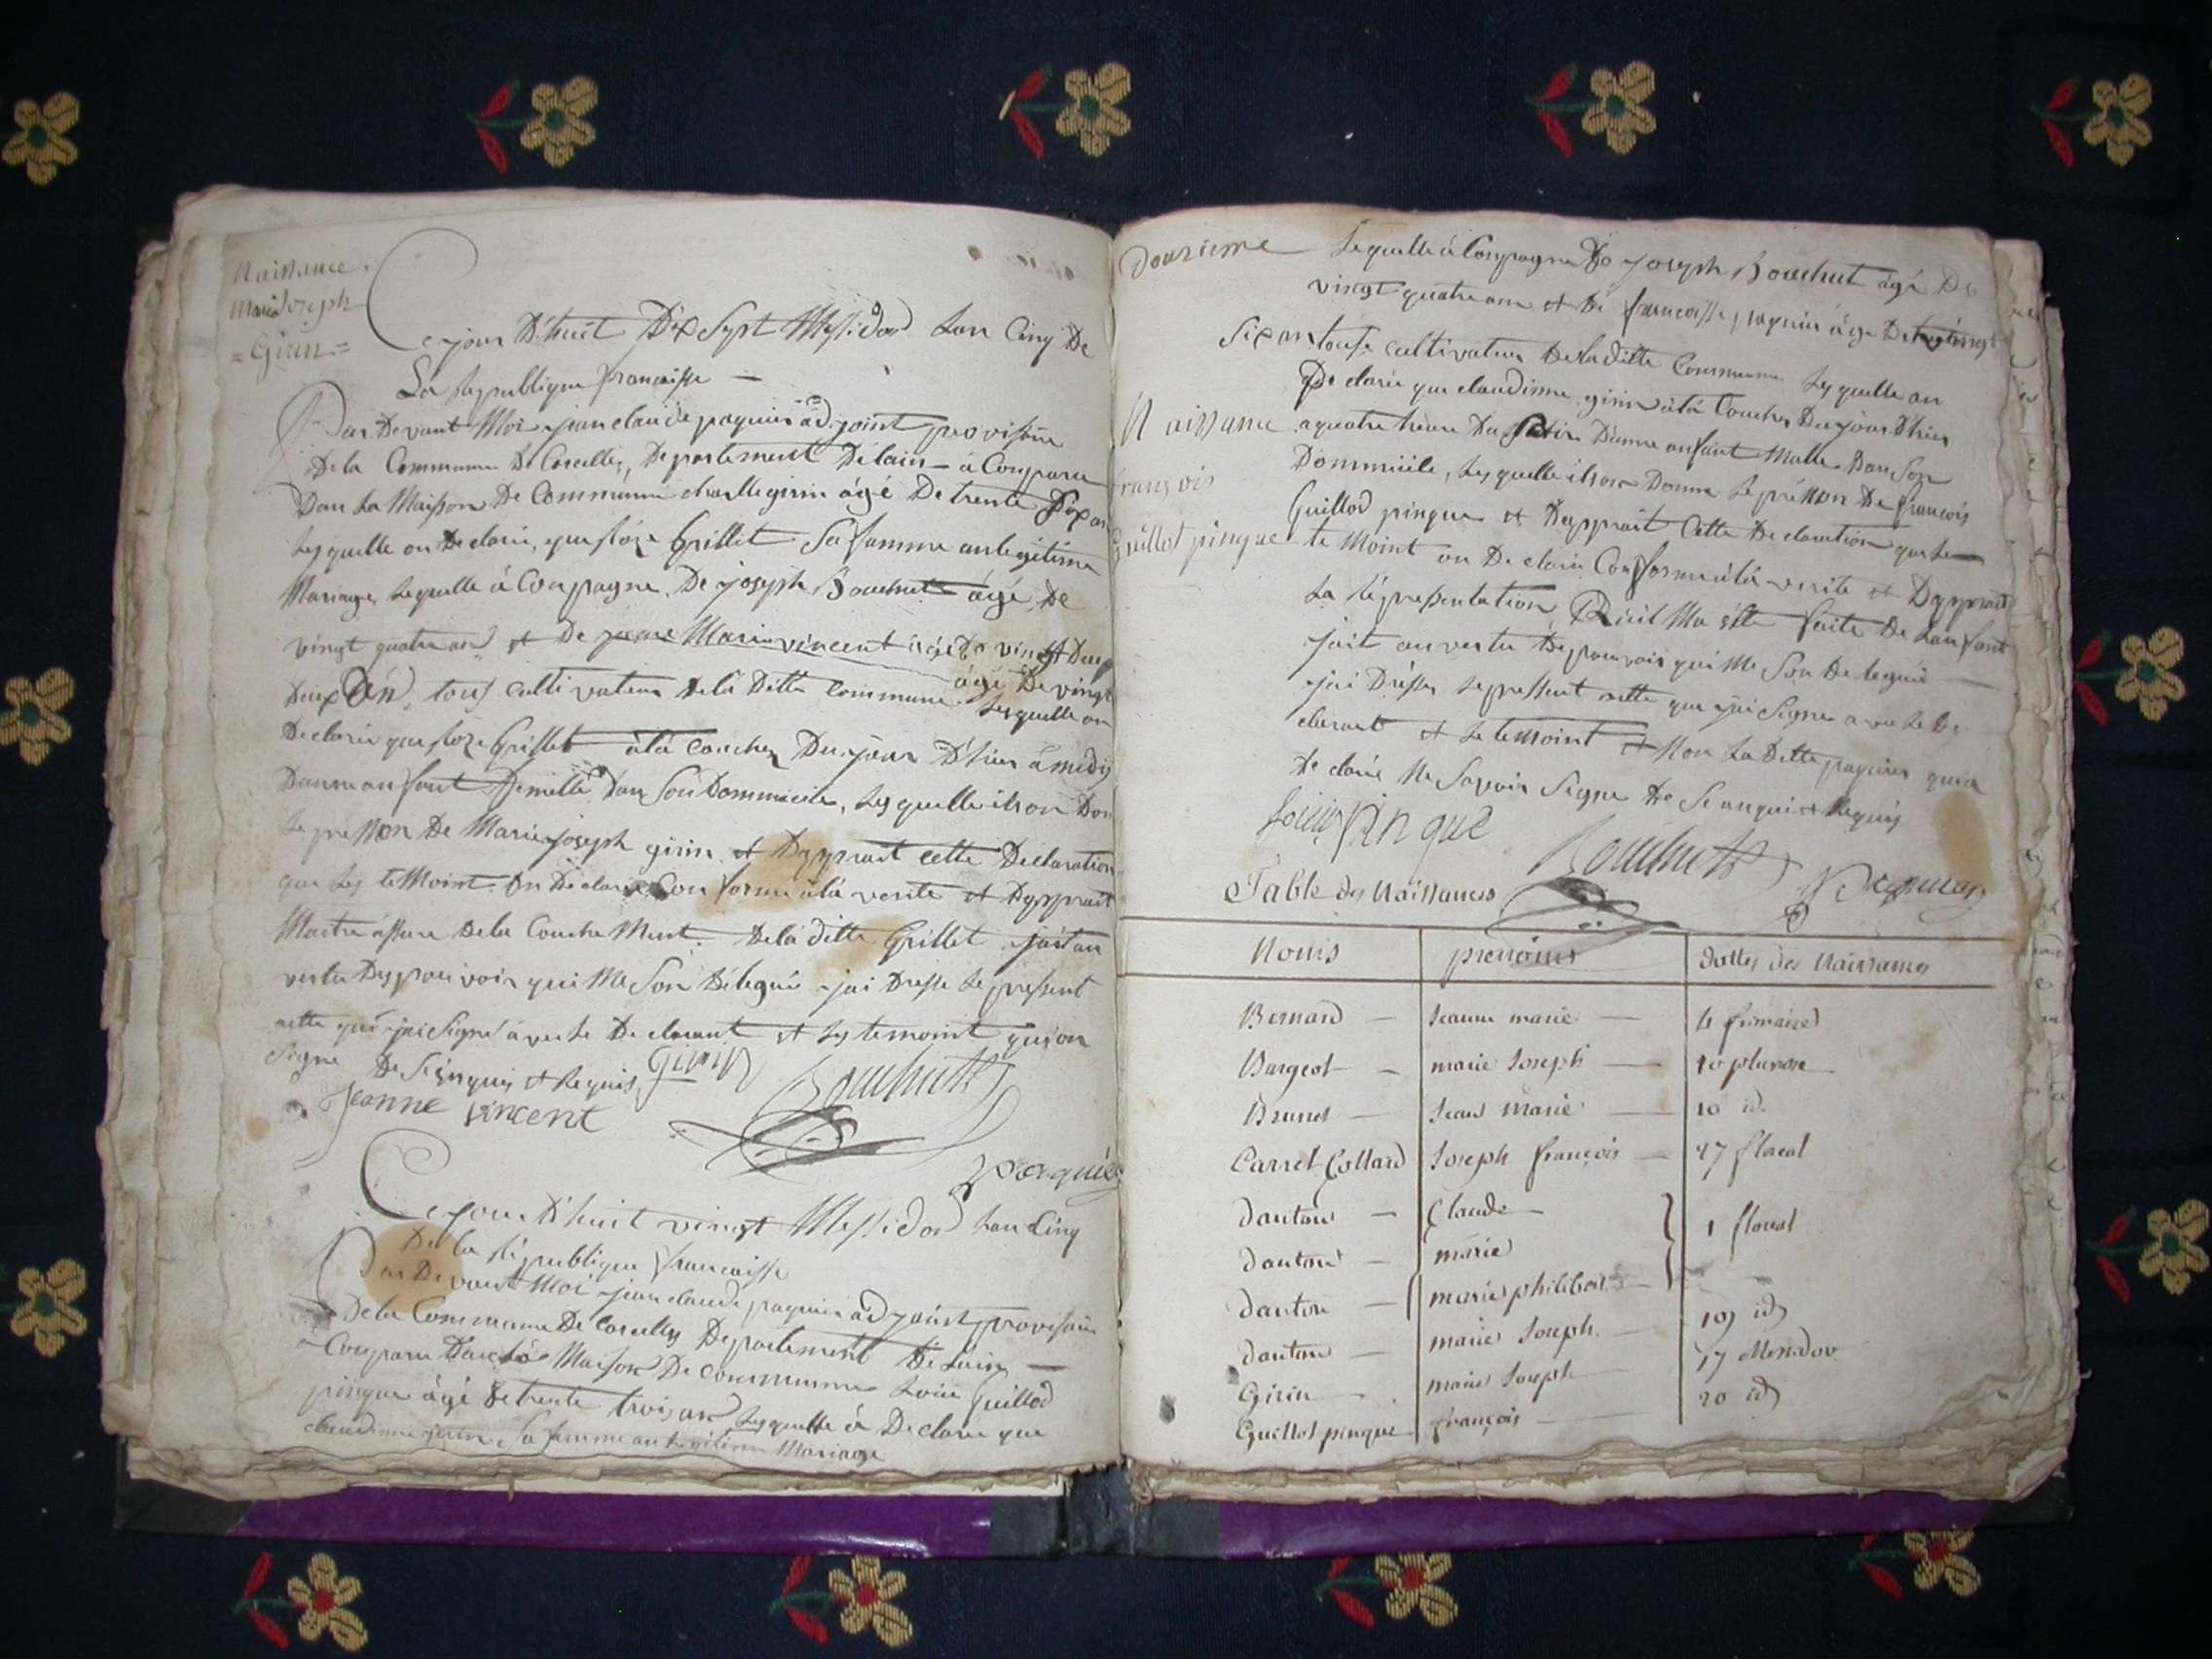 Naissance
Marie Joseph
= Girin =
Ce jour D'huit Dix Sept Messidor Lan Cinq De
La Republique francaisse —
Par Devant Moi jean claude paquier adjoint provisoire
De la Commune De Corcelles, Departement Délain — à Comparu
Dan La Maison De Commune charlle girin âgé De trente Six an
Lesquelle on De clarée, que floze Grillet Sa famme an legitime
Mariage, Lequelle à Compagne De joseph Bouchut âgé, De
vingt quatre an et De Marie vincent âgé De vingt Deux
âgé De vingt
Deux an, tous cultivateur Dela Ditte Commune Lesquelle on
Declarée que floze Grillet àla coucher Du jour D'hier à midy
Dunne anfant Femelle Dan Son Dommicile, Lesquelle ils on Don
Le prénon De Marie joseph girin et Dapprait cette Declaration
que Les teMoint on Declarée Conforme àla verite et Dapprait
Maitre assure Dela Couche Ment. Dela ditte Grillet jait an
vertu Des pouvoir qui Me Son Délegué jai Dresse Le pressent
acte que jai Signé avec Le Declarant et Les temoint qui on
Signe De Se enquis et Requis, Girin
Jeanne vincent Bouchut
paquier
Ce jour D'huit vingt Messidor Lan Cinq
De la République francaisse
Par Devant Moi jean claude paquier adjoint provisoire
De la Commune De Corcelles Departement De Lain —
à Comparu Dan la Maison De Commune Loui Guillod
pinque âgé De trente trois an Lesquelle à De claree que
claudinne girin Sa famme an Legitime Mariage
Douzieme Lequelle à Compagne De joseph Bouchut âgé De
vingt quatre an et De francoisse paquier âgé De vingt
Six an tous cultivateur De la ditte Commune Lesquelle on
De clarée que claudinne girin àla Coucher Du jour D'hier
Naissance a quatre heure Du Matin D'unne anfant Malle Dan Son
françois Dommicile, Lesquelle ils on Donne Le prénon De francois
Guillot pinque Guillod pinque et Dapprait Cette De claration que Le
te Moint on De clarée Conforme àla verite et Dapprait
La Répressentation Quil Ma été faite De Lanfant
jait an vertu De pouvoir qui Me Son De legué —
jai Dresse Le pressent acte que jai Signe avec Le De
clarant et Le teMoint et Non La Ditte paquier qui a
De clarée Ne Savoir Signe De Se anquis et Requis
Louis pinque Bouchut paquier
Table des Naissances
Noms prenoms dattes des Naissances
Bernard — Jeanne marie — 4 frimaire
Burgeot — marie Joseph — 10 pluviose
Brunet — Jean marie — 10 id.
Carret Collard Joseph françois — 27 floreal
danton — Claude —
danton — marie 1 floreal
danton — marie philibert —
danton — marie Joseph — 10 id
Girin — marie Joseph — 17 Messidor
Guillot pinque françois — 20 id